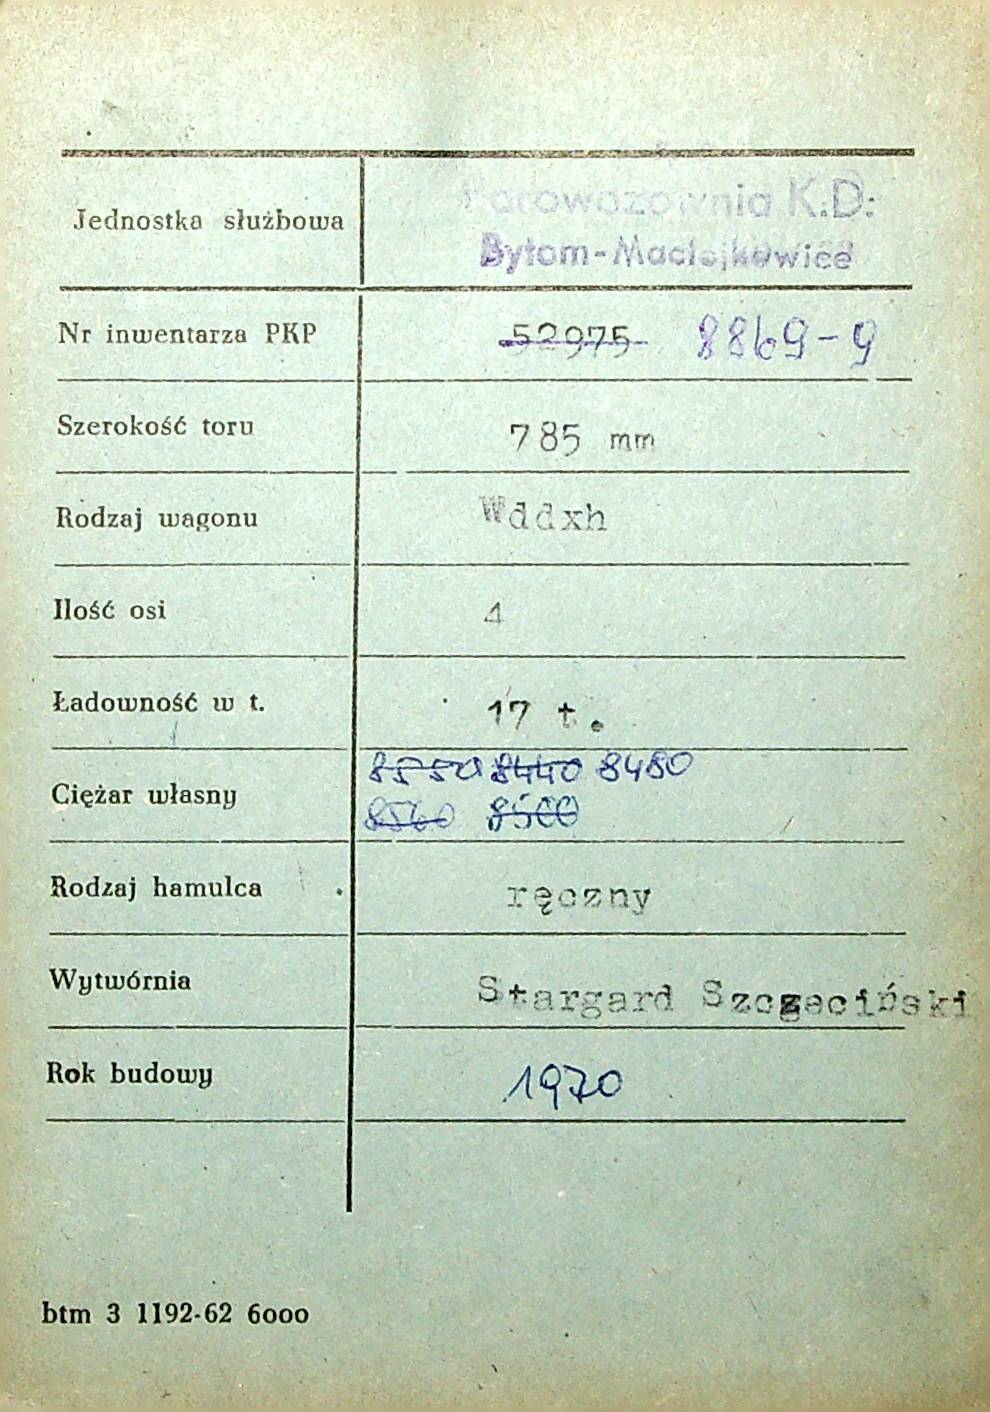 Jednostka służbowa Parowozownia K.D.
Bytom-Maciejkowice
Nr inwentarza PKP 52975 8869-9
Szerokość toru 785 mm
Rodzaj wagonu Wddxh
Ilość osi 4
Ładowność w t. 17 t.
8550 8440 8480
Ciężar własny
8560 8500
Rodzaj hamulca ręczny
Wytwórnia Stargard Szczeciński
Rok budowy 1970
btm 3 1192-62 6ooo